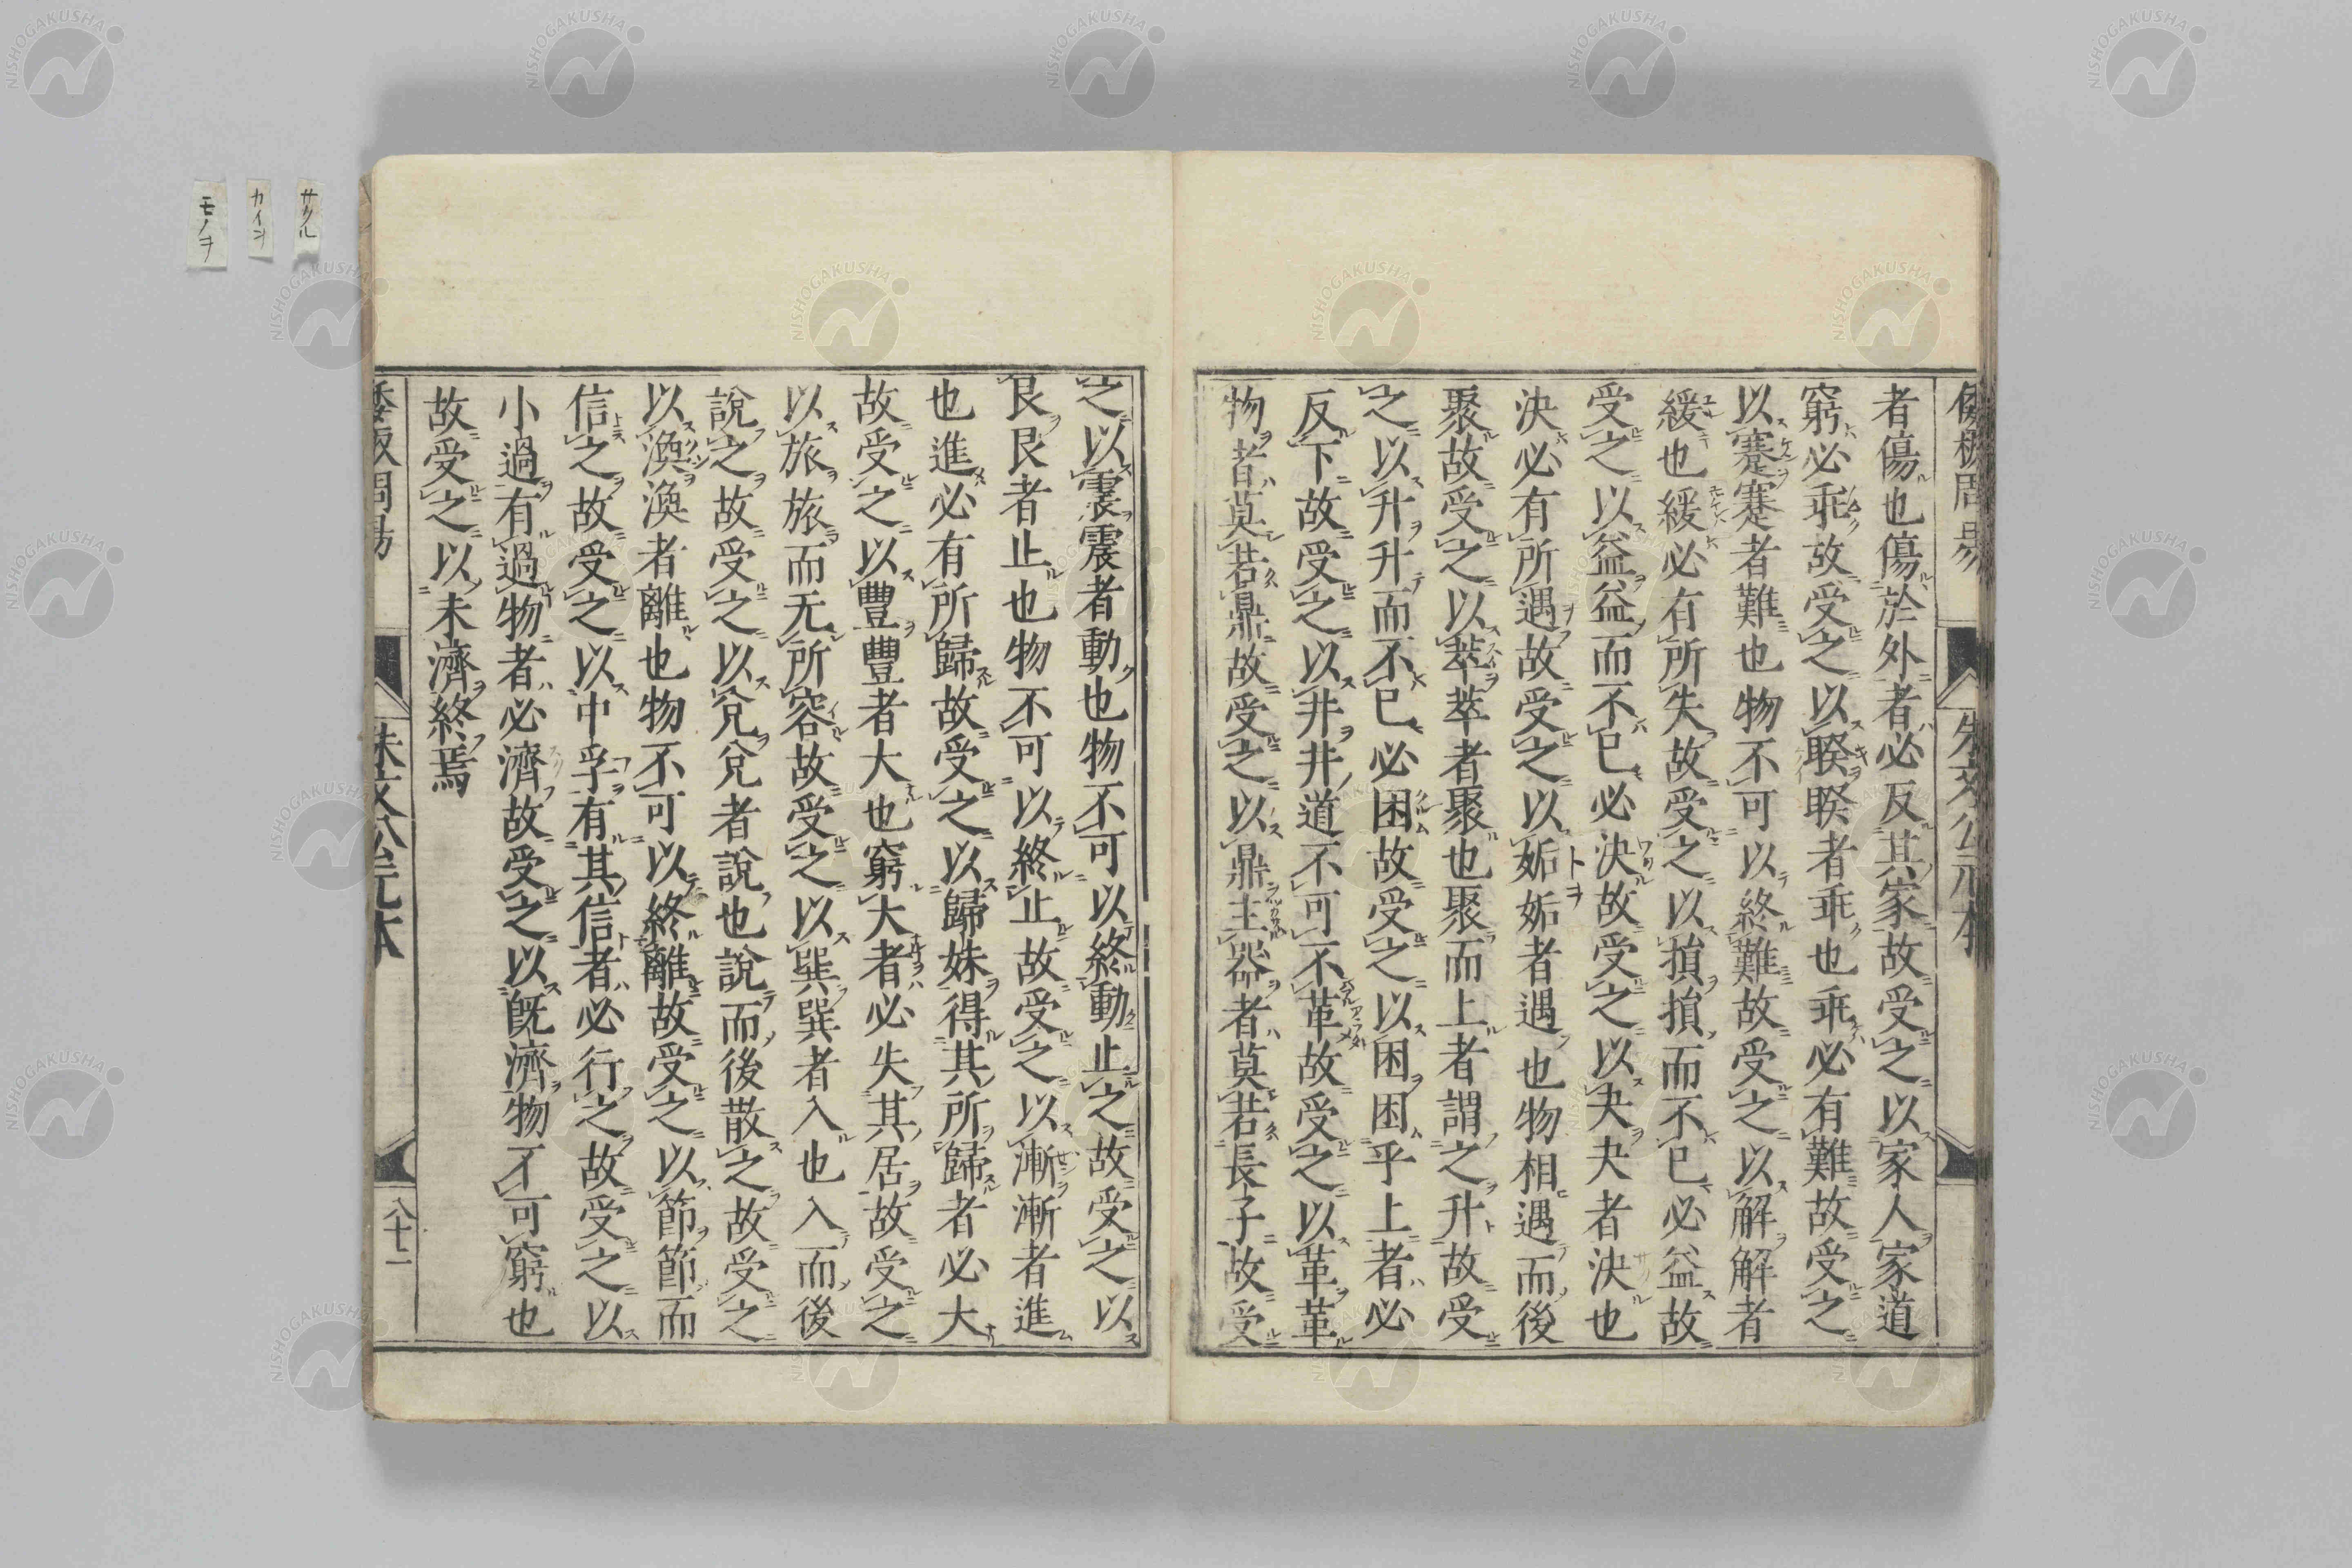 者傷也傷於外者必反其家故受之以家人家道
窮必乖故受之以睽睽者乖也乖必有難故受之
以蹇蹇者難也物不可以終難故受之以解解者
緩也緩必有所失故受之以損損而不已必益故
受之以益益而不已必決故受之以夬夬者決也
決必有所遇故受之以姤姤者遇也物相遇而後
聚故受之以萃萃者聚也聚而上者謂之升故受
之以升升而不已必困故受之以困困乎上者必
反下故受之以井井道不可不革故受之以革革
物者莫若鼎故受之以鼎主器者莫若長子故受
之以震震者動也物不可以終動止之故受之以
艮艮者止也物不可以終止故受之以漸漸者進
也進必有所歸故受之以歸妹得其所歸者必大
故受之以豐豐者大也窮大者必失其居故受之
以旅旅而无所容故受之以巽巽者入也入而後
說之故受之以兌兌者說也說而後散之故受之
以渙渙者離也物不可以終離故受之以節節而
信之故受之以中孚有其信者必行之故受之以
小過有過物者必濟故受之以既濟物不可窮也
故受之以未濟終焉
八十二
サクル
カイヲ
モノヲ
NISHOGAKUSHA